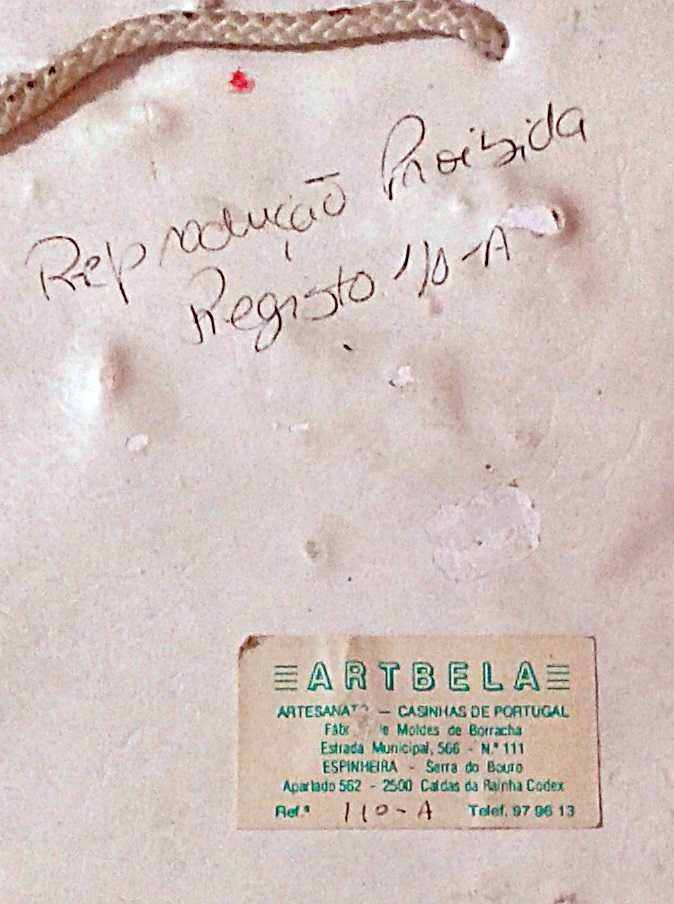 Reprodução Proibida
Registo 110-A
ARTBELA
ARTESANAT — CASINHAS DE PORTUGAL
Fáb e Moldes de Borracha
Estrada Municipal, 566 - N.º 111
ESPINHEIRA - Serra do Bouro
Apartado 562 - 2500 Caldas da Rainha Codex
Ref.ª 110-A Telef. 97 96 13